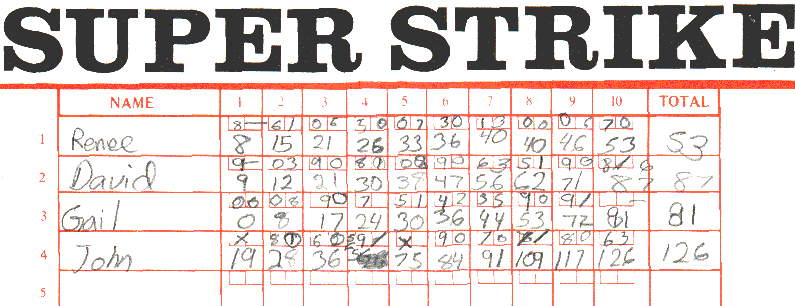 SUPER STRIKE
NAME 1 2 3 4 5 6 7 8 9 10 TOTAL
8 – 6 1 0 6 5 0 0 7 3 0 1 3 0 0 0 6 7 0
1 Renee 8 15 21 26 33 36 40 40 46 53 53
9 – 0 3 9 0 8 1 0 8 9 0 6 3 5 1 9 0 8 / 6
2 David 9 12 21 30 38 47 56 62 71 87 87
0 0 0 8 9 0 7 5 1 4 2 3 5 9 0 9 / – –
3 Gail 0 8 17 24 30 36 44 53 72 81 81
X 8 0 6 0 9 / X 9 0 7 0 8 / 8 0 6 3
4 John 19 28 36 75 84 91 109 117 126 126
5